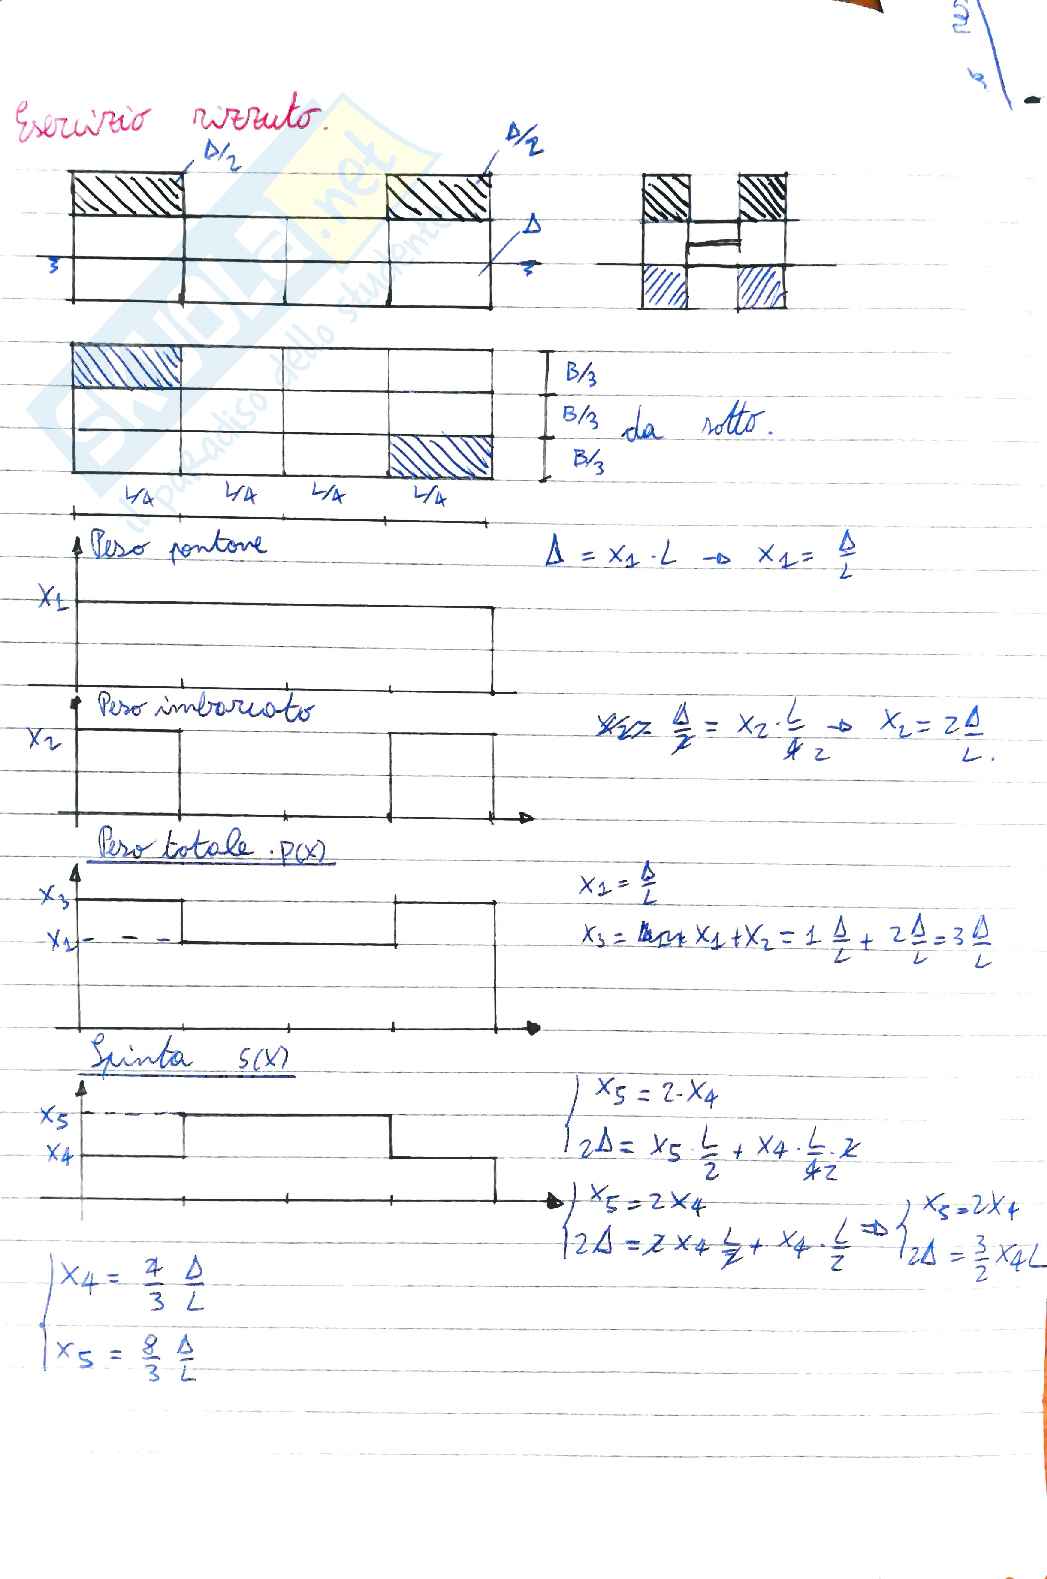 Esercizio rizzuto.
Δ/2
Δ/2
Δ
B/3
B/3 da sotto.
B/3
L/4 L/4 L/4 L/4
Peso pontone
Δ = x1 · L → x1 = Δ/L
x1
Peso imbarcato
x2
Δ/2 = x2 · L/2 → x2 = 2Δ/L.
Peso totale · p(x)
x3
x1 = Δ/L
x1
x3 = x1 + x2 = 1 Δ/L + 2 Δ/L = 3 Δ/L
Spinta s(x)
x5
x4
x5 = 2·x4
2Δ = x5 · L/2 + x4 · L/42 · 2
x5 = 2x4
2Δ = 2 x4 L/2 + x4 · L/2 ⇒
x5 = 2x4
2Δ = 3/2 x4 L
x4 = 4/3 Δ/L
x5 = 8/3 Δ/L
SKUOLA.net
il paradiso dello studente